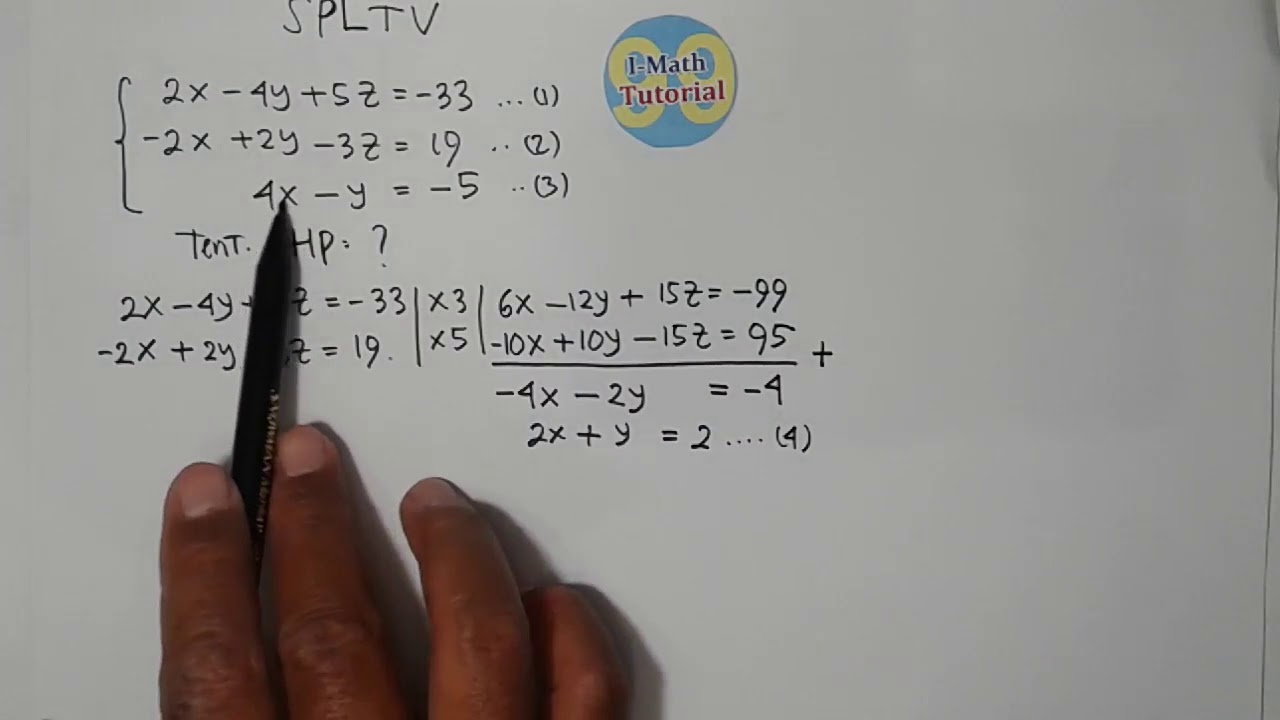 SPLTV
I-Math
Tutorial
2x - 4y + 5z = -33 ... (1)
-2x + 2y - 3z = 19 .. (2)
4x - y = -5 .. (3)
Tent. HP: ?
2x - 4y + z = -33 | x3 | 6x - 12y + 15z = -99
-2x + 2y z = 19. | x5 | -10x + 10y - 15z = 95 +
-4x - 2y = -4
2x + y = 2 .... (4)